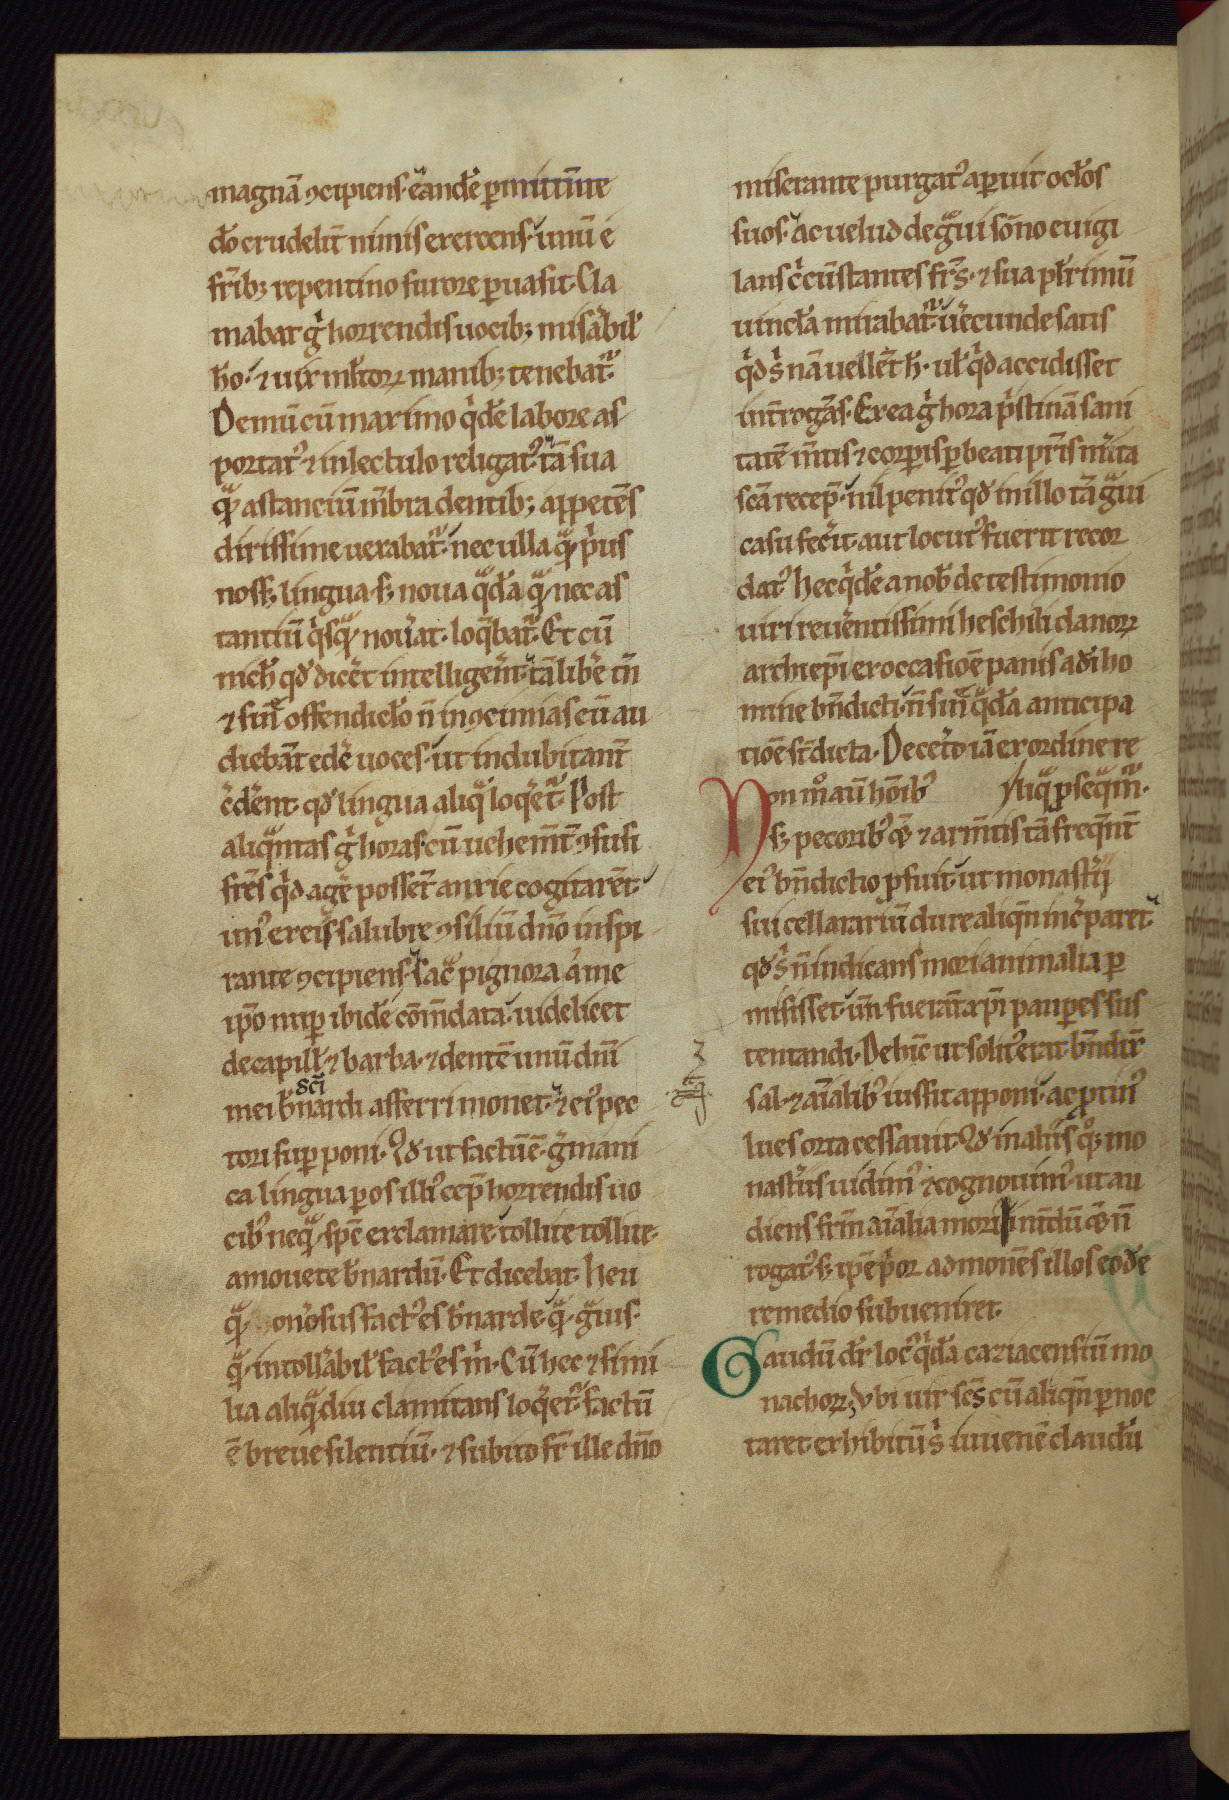 magnā ꝯcipiens· eandē ꝑmittūne
do crudelit̄ nimis exercens· unū e
frībꝫ repentino furore ꝑuasit· Cla
mabat gͥ horrendis uocibꝫ misabil̄
ho· ⁊ uix ml̄toꝝ manibꝫ tenebat̄·
Demū cū maximo qͥdē labore as
portat᾽ ⁊ in lectulo religat᾽· tā sua
qͣꝫ astanciū mēbra dentibꝫ appetēs
dirissime uexabat̄· nec ulla qͣꝫ pͥus
nosset lingua· sꝫ noua qͣdā qͣꝫ nec as
tantiū qͥsqͣꝫ nou̾at· loq̄bat̄· Et cū
nich̄ qd̄ dic̄et intelligeret̄· tā libe᷒ tn̄
⁊ sin̄ offendiclo n̄ incꝯcinnas eū au
diebant edē uoces· ut indubitant̄
c̄derent qd̄ lingua aliqͣ loq̄ret̄· Post
aliqͣntas gͥ horas cū uehemt̄ ꝯfusi
frēs qͥd age᷒ possēt anxie cogitarēt·
un᾽ ex eis salubre ꝯsiliū dn̄o inspi
rante ꝯcipiens· sac̄ pignora a me
ip̄o nuꝑ ibidē cōmdata· uidelicet
de capill̄ ⁊ barba· ⁊ dentē unū dn̄i
sci
mei b̄nardi afferri monet· ⁊ ei᾽ pec
tori suꝑponi· Qd̄ ut factū ē· gͥmani
ca lingua ꝑ os illi᾽ cep̄ horrendis uo
cib᾽ neqͣꝫ spē exclamare· tollite tollite·
amouete b̄nardū· Et dicebat· Heu
qͣꝫ on̾osus fact᾽ es b̄narde· qͣꝫ gͣuis·
qͣꝫ intoll̾abil̄ fact᾽ es m̄· Cū hec ⁊ simi
lia aliqͣdiu clamitans loq̄ret̄· factū
ē breue silentiū· ⁊ subito fr̄ ille dn̄o
miserante purgat᾽ aperuit oclos
suos· ac uelud de gͣui sōno euigi
lans cͥcūstantes fr̄s· ⁊ sua pl̄rimū
uincla mirabat̄· uerecunde satis
qͥd sͥ nā uellent h̄· ul̄ qͥd accidisset
int̄rogās· Ex ea gͥ hora pͥstinā sani
tatē m̄tis ⁊ corꝑis ꝑ beati pr̄is m̾ita
scā recep̄· nil penit᾽ qd̄ in illo tā gͣui
casu fec̾it· aut locut᾽ fuerit recor
dat᾽· Hec qͥdē a nob̄ de testimonio
uiri reu̾entissimi heschili danoꝝ
archiep̄i ex occasiōe panis ad̄i ho
mine bn̄dicti· n̄ sin̄ qͣdā anticipa
tiōe sn̄t dicta· De cet̾o iā ex ordine re
Non mo᷒ aū hōib᾽ liqͣ ꝑseqͣm̄·
sꝫ pecorib᾽ qͦꝫ ⁊ armtis tā freqn̄t
ei᾽ bn̄dictio ꝓfuit· ut monast̾ij
sui cellarariū dure aliqn̄ inc̄paret·
qd̄ sͥ n̄ indicans mori animalia ꝑ
misisset· un̄ fuerant xp̄i pauꝑes sus
tentandi· Dehinc ut solit᾽ erat bn̄dix̄
sal· ⁊ aīalib᾽ iussit apponi· ac ꝓtin᾽
lues orta cessauit· Qd̄ in aliis qͦꝫ mo
nast̾iis uidim᾽ ⁊ cognouim᾽· ut au
diens fr̄m aīalia mori int̾dū qͦꝫ n̄
rogat᾽· sꝫ ip̄e p̾or admonēs illos eodē
remedio subueniret·
Gaudū dr̄ loc᾽ qͥdā caziacensiū mo
nachoꝝ· Vbi uir scs̄ cū aliqn̄ ꝑnoc
taret exhibitū sͥ iuuenē claudū